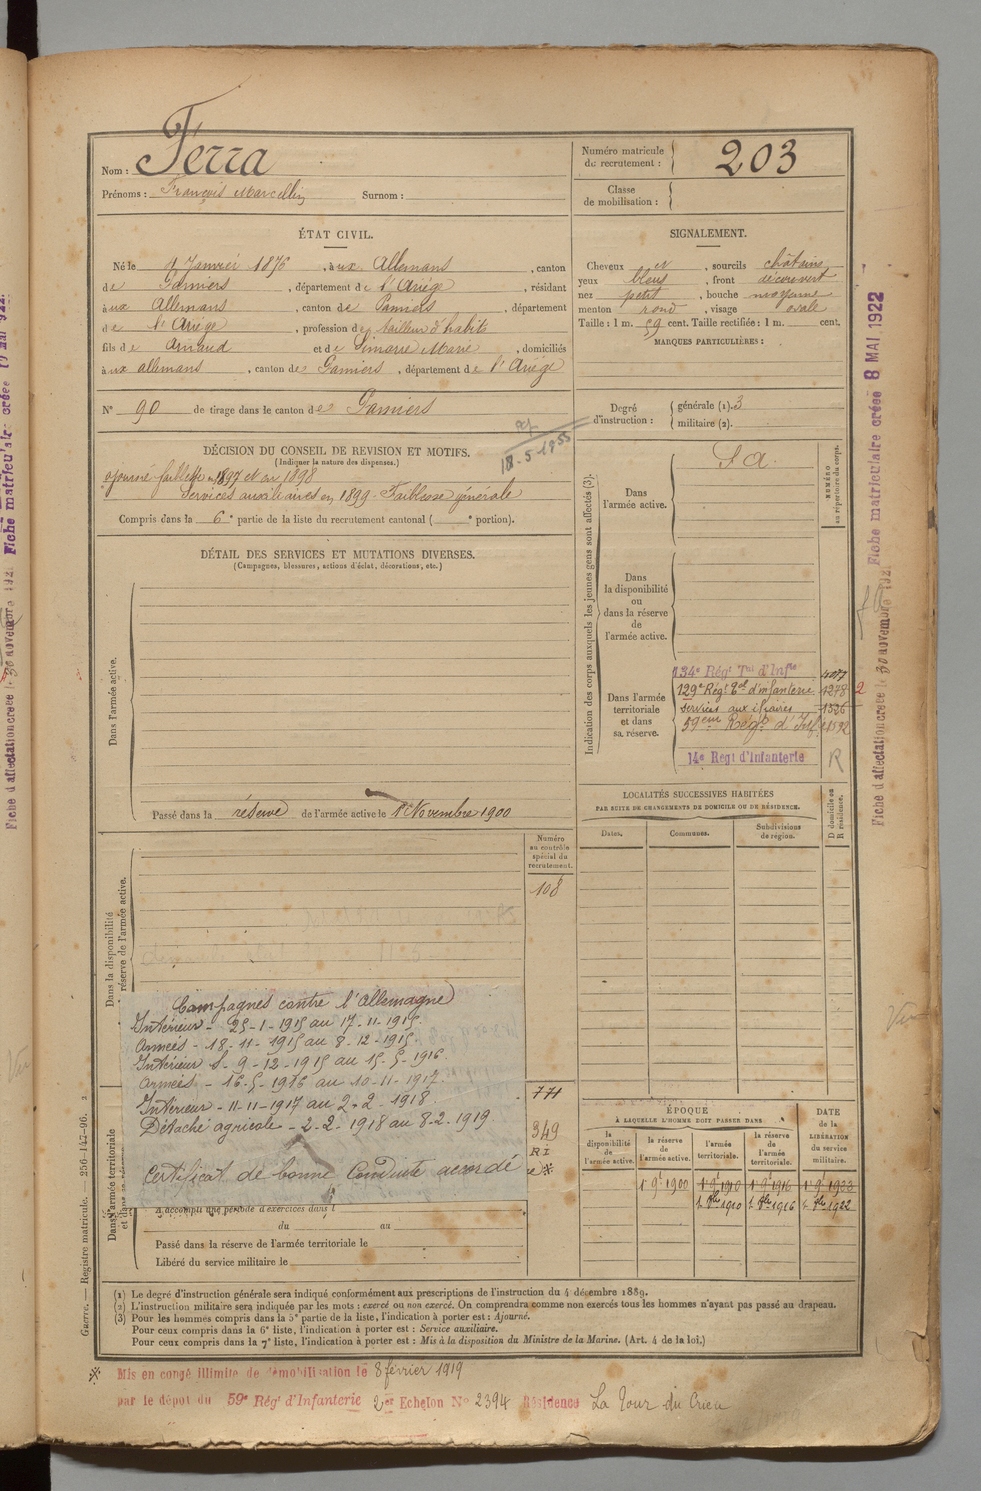 Nom : Ferra
Prénoms : François Marcellin Surnom :
Numéro matricule du recrutement : 203
Classe de mobilisation :
ÉTAT CIVIL.
Né le 1 Janvier 1876, à ux Allemans, canton
de Pamiers, département de l'Ariège, résidant
à ux Allemans, canton de Pamiers, département
de l'Ariège, profession de tailleur d'habits
fils de Arnaud et de Marie, domiciliés
à ux allemans, canton de Pamiers, département de l'Ariège
N° 90 de tirage dans le canton de Pamiers
SIGNALEMENT.
Cheveux et, sourcils châtains
yeux bleus, front découvert
nez petit, bouche moyenne
menton rond, visage ovale
Taille : 1 m. 59 cent. Taille rectifiée : 1 m. cent.
MARQUES PARTICULIÈRES :
Degré d'instruction : générale (1). 3
militaire (2).
18-5-1955
DÉCISION DU CONSEIL DE REVISION ET MOTIFS.
(Indiquer la nature des dispenses.)
ajourné faiblesse en 1897 et en 1898
Services auxiliaires en 1899. Faiblesse générale
Compris dans la 6e partie de la liste du recrutement cantonal ( e portion).
DÉTAIL DES SERVICES ET MUTATIONS DIVERSES.
(Campagnes, blessures, actions d'éclat, décorations, etc.)
Dans l'armée active.
Passé dans la réserve de l'armée active le 1er Novembre 1900
Indication des corps auxquels les jeunes gens sont affectés (3).
NUMÉRO au répertoire du corps.
Dans l'armée active.
S A.
Dans la disponibilité ou dans la réserve de l'armée active.
Dans l'armée territoriale et dans sa réserve.
134e Régt Tal d'Infie
129e Régt Tal d'infanterie 1278
services auxiliaires 1526
59eme Régt d'Inf 1592
14e Régt d'Infanterie R
LOCALITÉS SUCCESSIVES HABITÉES
PAR SUITE DE CHANGEMENTS DE DOMICILE OU DE RÉSIDENCE.
Dates. Communes. Subdivisions de région.
D domicile ou R résidence.
Numéro au contrôle spécial du recrutement.
108
771
349
RI
Dans la disponibilité
réserve de l'armée active.
Campagnes contre l'Allemagne
Intérieur - 25-1-1915 au 17-11-1915.
Armées - 18-11-1915 au 8-12-1915.
Intérieur - 9-12-1915 au 15-5-1916.
Armées - 16-5-1916 au 10-11-1917.
Intérieur - 11-11-1917 au 2-2-1918.
Détaché agricole - 2-2-1918 au 8-2-1919.
Certificat de bonne conduite accordé
Dans l'armée territoriale
A accompli une période d'exercices dans l
du au
Passé dans la réserve de l'armée territoriale le
Libéré du service militaire le
ÉPOQUE
À LAQUELLE L'HOMME DOIT PASSER DANS
la disponibilité de l'armée active. la réserve de l'armée active. l'armée territoriale. la réserve de l'armée territoriale.
DATE de la LIBÉRATION du service militaire.
1 9e 1900 1 9e 1910 1 9e 1916 1 9e 1922
1 8bre 1910 1 8bre 1916 1 8bre 1922
(1) Le degré d'instruction générale sera indiqué conformément aux prescriptions de l'instruction du 4 décembre 1889.
(2) L'instruction militaire sera indiquée par les mots : exercé ou non exercé. On comprendra comme non exercés tous les hommes n'ayant pas passé au drapeau.
(3) Pour les hommes compris dans la 5e partie de la liste, l'indication à porter est : Ajourné.
Pour ceux compris dans la 6e liste, l'indication à porter est : Service auxiliaire.
Pour ceux compris dans la 7e liste, l'indication à porter est : Mis à la disposition du Ministre de la Marine. (Art. 4 de la loi.)
Mis en congé illimité de démobilisation le 8 février 1919
par le dépôt du 59e Régt d'Infanterie 2er Echelon N° 2394 Résidence La Tour du Crieu
Guerre. — Registre matricule. — 256-147-96. 2
Fiche matriculaire créée 8 MAI 1922
Fiche d'affectation créée le 30 novembre 1921